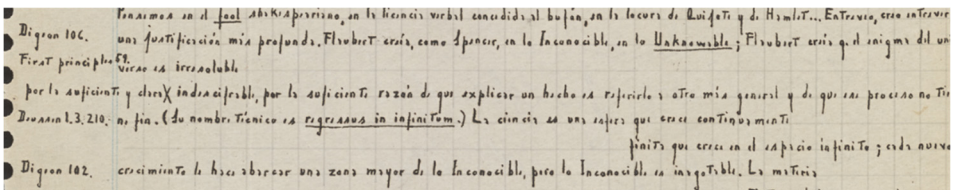 Pensemos en el fool shakespeariano, en la licencia verbal concedida al bufón, en la locura de Quijote y de Hamlet... Entreveo, creo entrever
Digeon 106. una justificación más profunda. Flaubert creía, como Spencer, en lo Inconocible, en lo Unknowable; Flaubert creía q. el enigma del uni
First principles 59. verso es irresoluble
por la suficiente y clara indescifrable, por la suficiente razón de que explicar un hecho es referirlo a otro más general y de que ese proceso no tie
Deussen 1.3.210. ne fin. (Su nombre técnico es regressus in infinitum.) La ciencia es una esfera que crece continuamente
finita que crece en el espacio infinito; cada nuevo
Digeon 102. crecimiento le hace abarcar una zona mayor de lo Inconocible, pero lo Inconocible es inagotable. La materia